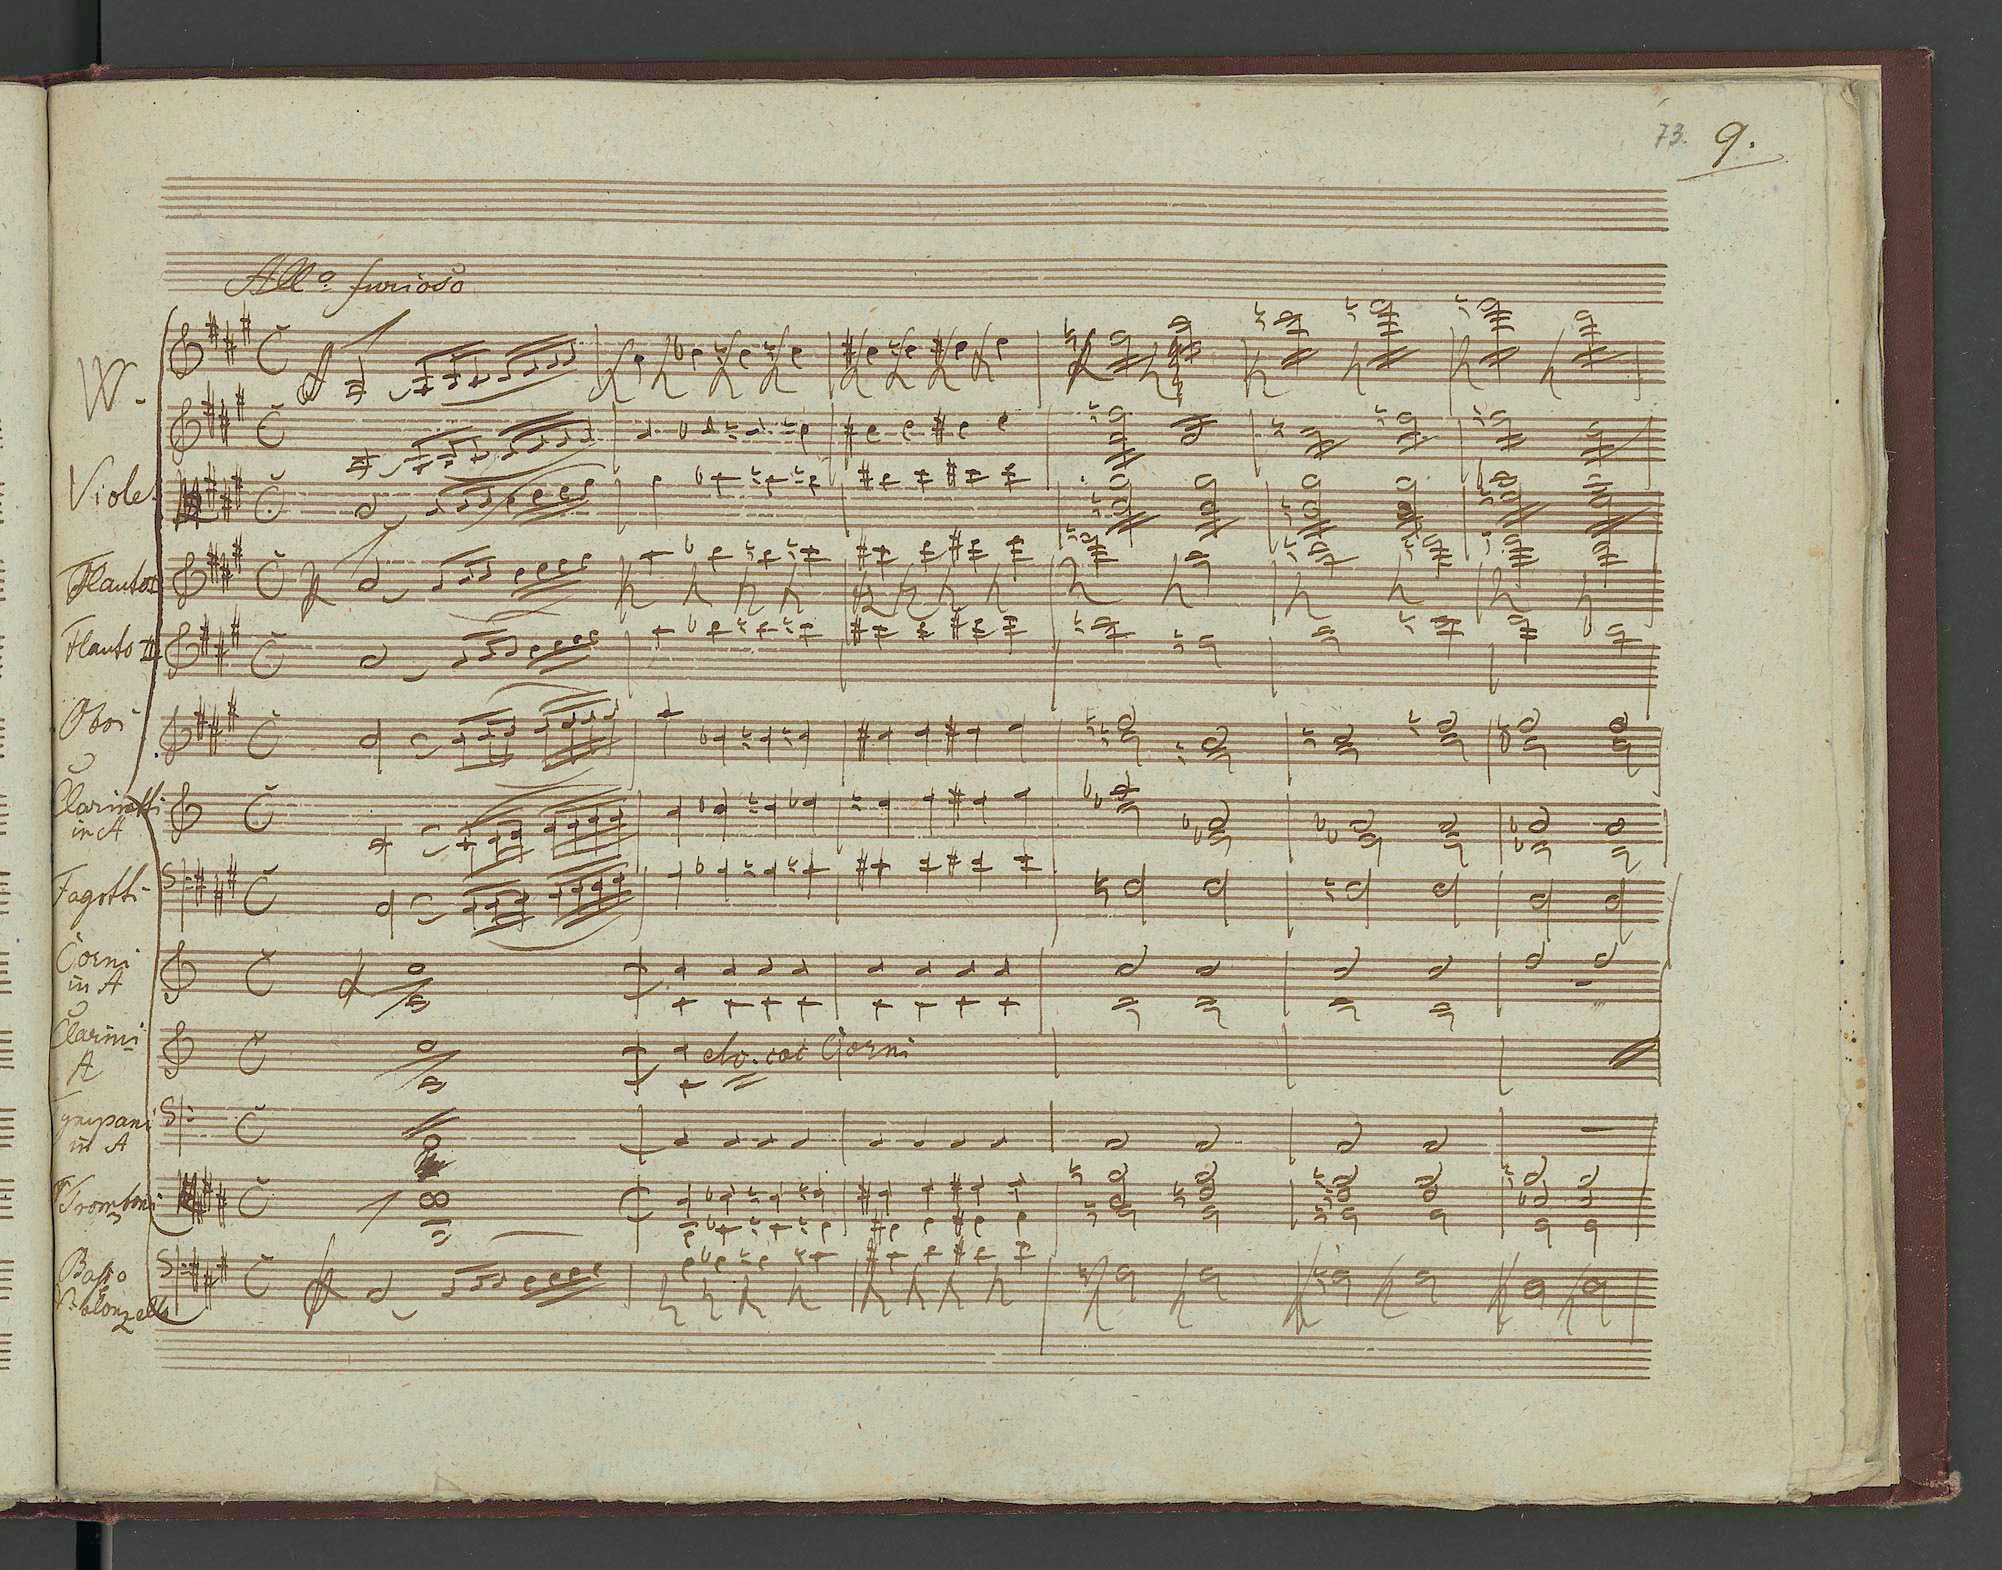 73. 9.
All.o furioso
VV.
Viole
Flauto I
Flauto II
Oboi
Clarinetti
in A
Fagotti
Corni
in A
Clarini
A
etc. coi Corni
Tympani
in A
Tromboni
3
Basso
e
Violonzello